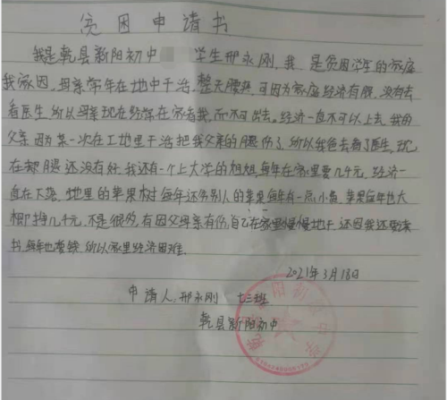 贫困申请书
我是乾县新阳初中 学生邢永刚,我是贫困学生的家庭
我家因,母亲常年在地中干活,整天腰疼,可因为家庭经济有限,没有去
看医生所以母亲现在经常在家 不可出去。经济一直不可以上去,我的
父亲因为某一次在工地里干活把我父亲的腰伤了所以我爸去看了医生,现
在都腰还没有好,我还有一个上大学的姐姐,每年在家里要几千元,经济一
直在下落,地里的苹果树每年还 别人的 每年有一点小 苹果每年也大
相 挣几千元,不是很多,有因父母亲有伤,自己在家里慢慢地干,还因我还要读
书,每年也要钱,所以家里经济困难.
2021年3月18日
申请人 邢永刚 七三班
乾县新阳初中